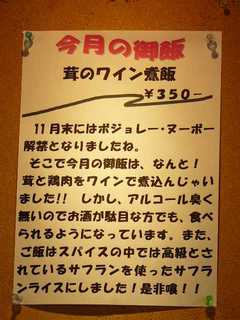 今月の御飯
茸のワイン煮飯
￥３５０－
１１月末にはボジョレー・ヌーボー
解禁となりましたね。
そこで今月の御飯は、なんと！
茸と鶏肉をワインで煮込んじゃい
ました!!　しかし、アルコール臭く
無いのでお酒が駄目な方でも、食べ
られるようになっています。また、
ご飯はスパイスの中では高級とさ
れているサフランを使ったサフラ
ンライスにしました！是非喰！！